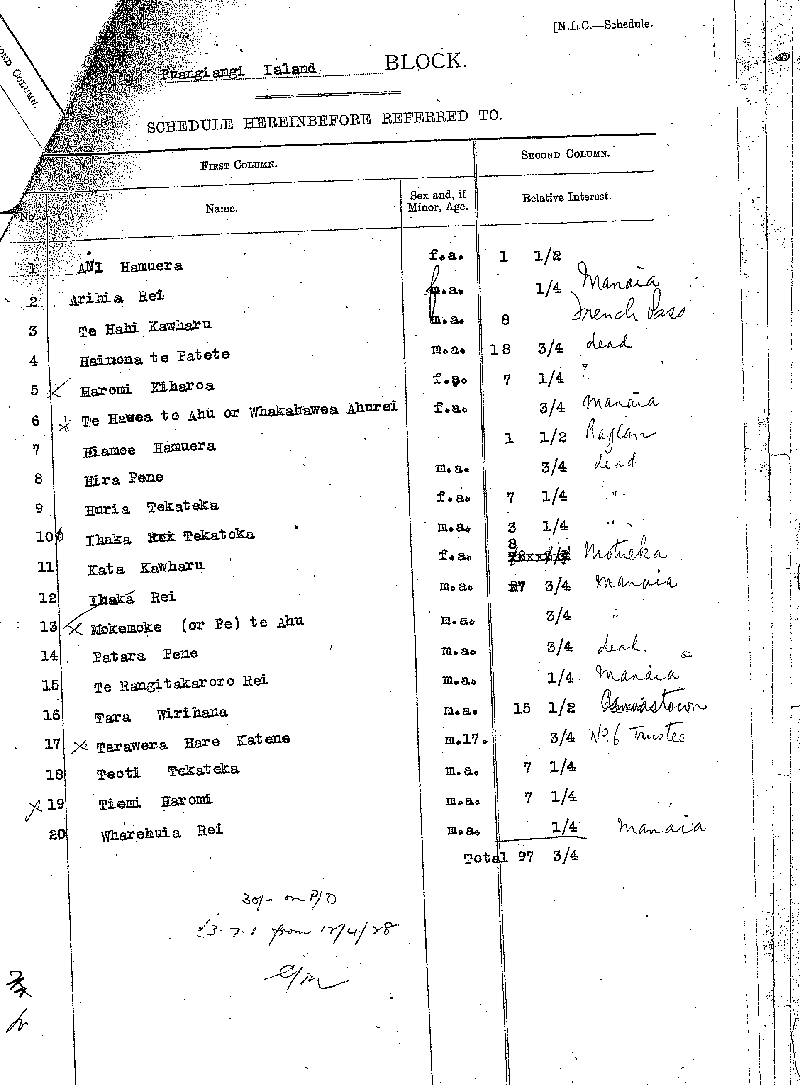 [N.L.C.—Schedule.
OND COLUMN.
Puangiangi Island BLOCK.
SCHEDULE HEREINBEFORE REFERRED TO.
FIRST COLUMN. SECOND COLUMN.
No. Name. Sex and, if Minor, Age. Relative Interest.
1 Ani Hamuera f.a. 1 1/2
2 Arihia Rei f m.a. 1/4 Manaia
3 Te Hahi Kawharu m.a. 8 French Pass
4 Haimona te Patete m.a. 18 3/4 dead
5 Haromi Kiharoa f.a. 7 1/4 "
6 x Te Hawea te Ahu or Whakahawea Ahurei f.a. 3/4 Manaia
7 Hiamoe Hamuera 1 1/2 Raglan
8 Hira Pene m.a. 3/4 dead
9 Huria Tekateka f.a. 7 1/4 "
10 Ihaka Tekateka m.a. 3 1/4 "
11 Kata Kawharu f.a. 8 Motueka
12 Ihaka Rei m.a. 3/4 Manaia
13 x Mokemoke (or Pe) te Ahu m.a. 3/4 "
14 Patara Pene m.a. 3/4 dead.
15 Te Rangitakaroro Rei m.a. 1/4 Manaia
16 Tara Wirihana m.a. 15 1/2
17 x Tarawera Hare Katene m.17. 3/4 No. 6 Trustee
18 Teoti Tekateka m.a. 7 1/4
x 19 Tiemi Haromi m.a. 7 1/4
20 Wharehuia Rei m.a. 1/4 Manaia
Total 97 3/4
30/- on P/O
£3.7.1 from 12/4/28